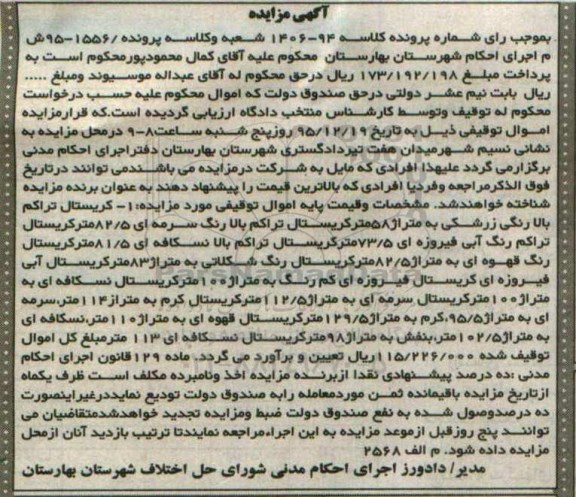 آگهی مزایده
بموجب رای شماره پرونده کلاسه ۹۴-۱۴۰۶ شعبه وکلاسه پرونده /۱۵۵۶-۹۵ش
م اجرای احکام شهرستان بهارستان محکوم علیه آقای کمال محمودپورمحکوم است به
پرداخت مبلغ ۱۷۳/۱۹۲/۱۹۸ ریال درحق محکوم له آقای عبداله موسیوند ومبلغ .....
ریال بابت نیم عشر دولتی درحق صندوق دولت که اموال محکوم علیه حسب درخواست
محکوم له توقیف وتوسط کارشناس منتخب دادگاه ارزیابی گردیده است.که قرارمزایده
اموال توقیفی ذیل به تاریخ ۹۵/۱۲/۱۹ روزپنج شنبه ساعت۸-۹ درمحل مزایده به
نشانی نسیم شهرمیدان هفت تیردادگستری شهرستان بهارستان دفتراجرای احکام مدنی
برگزارمی گردد علیهذا افرادی که مایل به شرکت درمزایده می باشندمی توانند درتاریخ
فوق الذکرمراجعه وفردیا افرادی که بالاترین قیمت را پیشنهاد دهند به عنوان برنده مزایده
شناخته خواهندشد. مشخصات وقیمت پایه اموال توقیفی مورد مزایده:۱- کریستال تراکم
بالا رنگی زرشکی به متراژ۵۸مترکریستال تراکم بالا رنگ سرمه ای ۸۲/۵مترکریستال
تراکم رنگ آبی فیروزه ای ۷۳/۵مترکریستال تراکم بالا نسکافه ای ۸۱/۵مترکریستال
رنگ قهوه ای به متراژ۸۲/۵مترکریستال رنگ شکلاتی به متراژ۸۳مترکریستال آبی
فیروزه ای کریستال فیروزه ای کم رنگ به متراژ۱۰۰مترکریستال نسکافه ای به
متراژ۱۰۰مترکریستال سرمه ای به متراژ۱۱۲/۵مترکریستال کرم به متراژ۱۱۴متر،سرمه
ای به متراژ۹۵/۵،کرم به متراژ۱۲۹/۵مترکریستال قهوه ای به متراژ۱۱۰متر،نسکافه ای
به متراژ۱۰۲/۵متر،بنفش به متراژ۹۸مترکریستال نسکافه ای ۱۱۳ مترمبلغ کل اموال
توقیف شده ۱۱۵/۲۲۶/۰۰۰ریال تعیین و برآورد می گردد. ماده ۱۲۹قانون اجرای احکام
مدنی :ده درصد پیشنهادی نقدا ازبرنده مزایده اخذ ونامبرده مکلف است ظرف یکماه
ازتاریخ مزایده باقیمانده ثمن موردمعامله رابه صندوق دولت تودیع نمایددرغیراینصورت
ده درصدوصول شده به نفع صندوق دولت ضبط ومزایده تجدید خواهدشدمتقاضیان می
توانند پنج روزقبل ازموعد مزایده به این اجراءمراجعه نمایندتا ترتیب بازدید آنان ازمحل
مزایده داده شود. م الف ۲۵۶۸
مدیر/ دادورز اجرای احکام مدنی شورای حل اختلاف شهرستان بهارستان